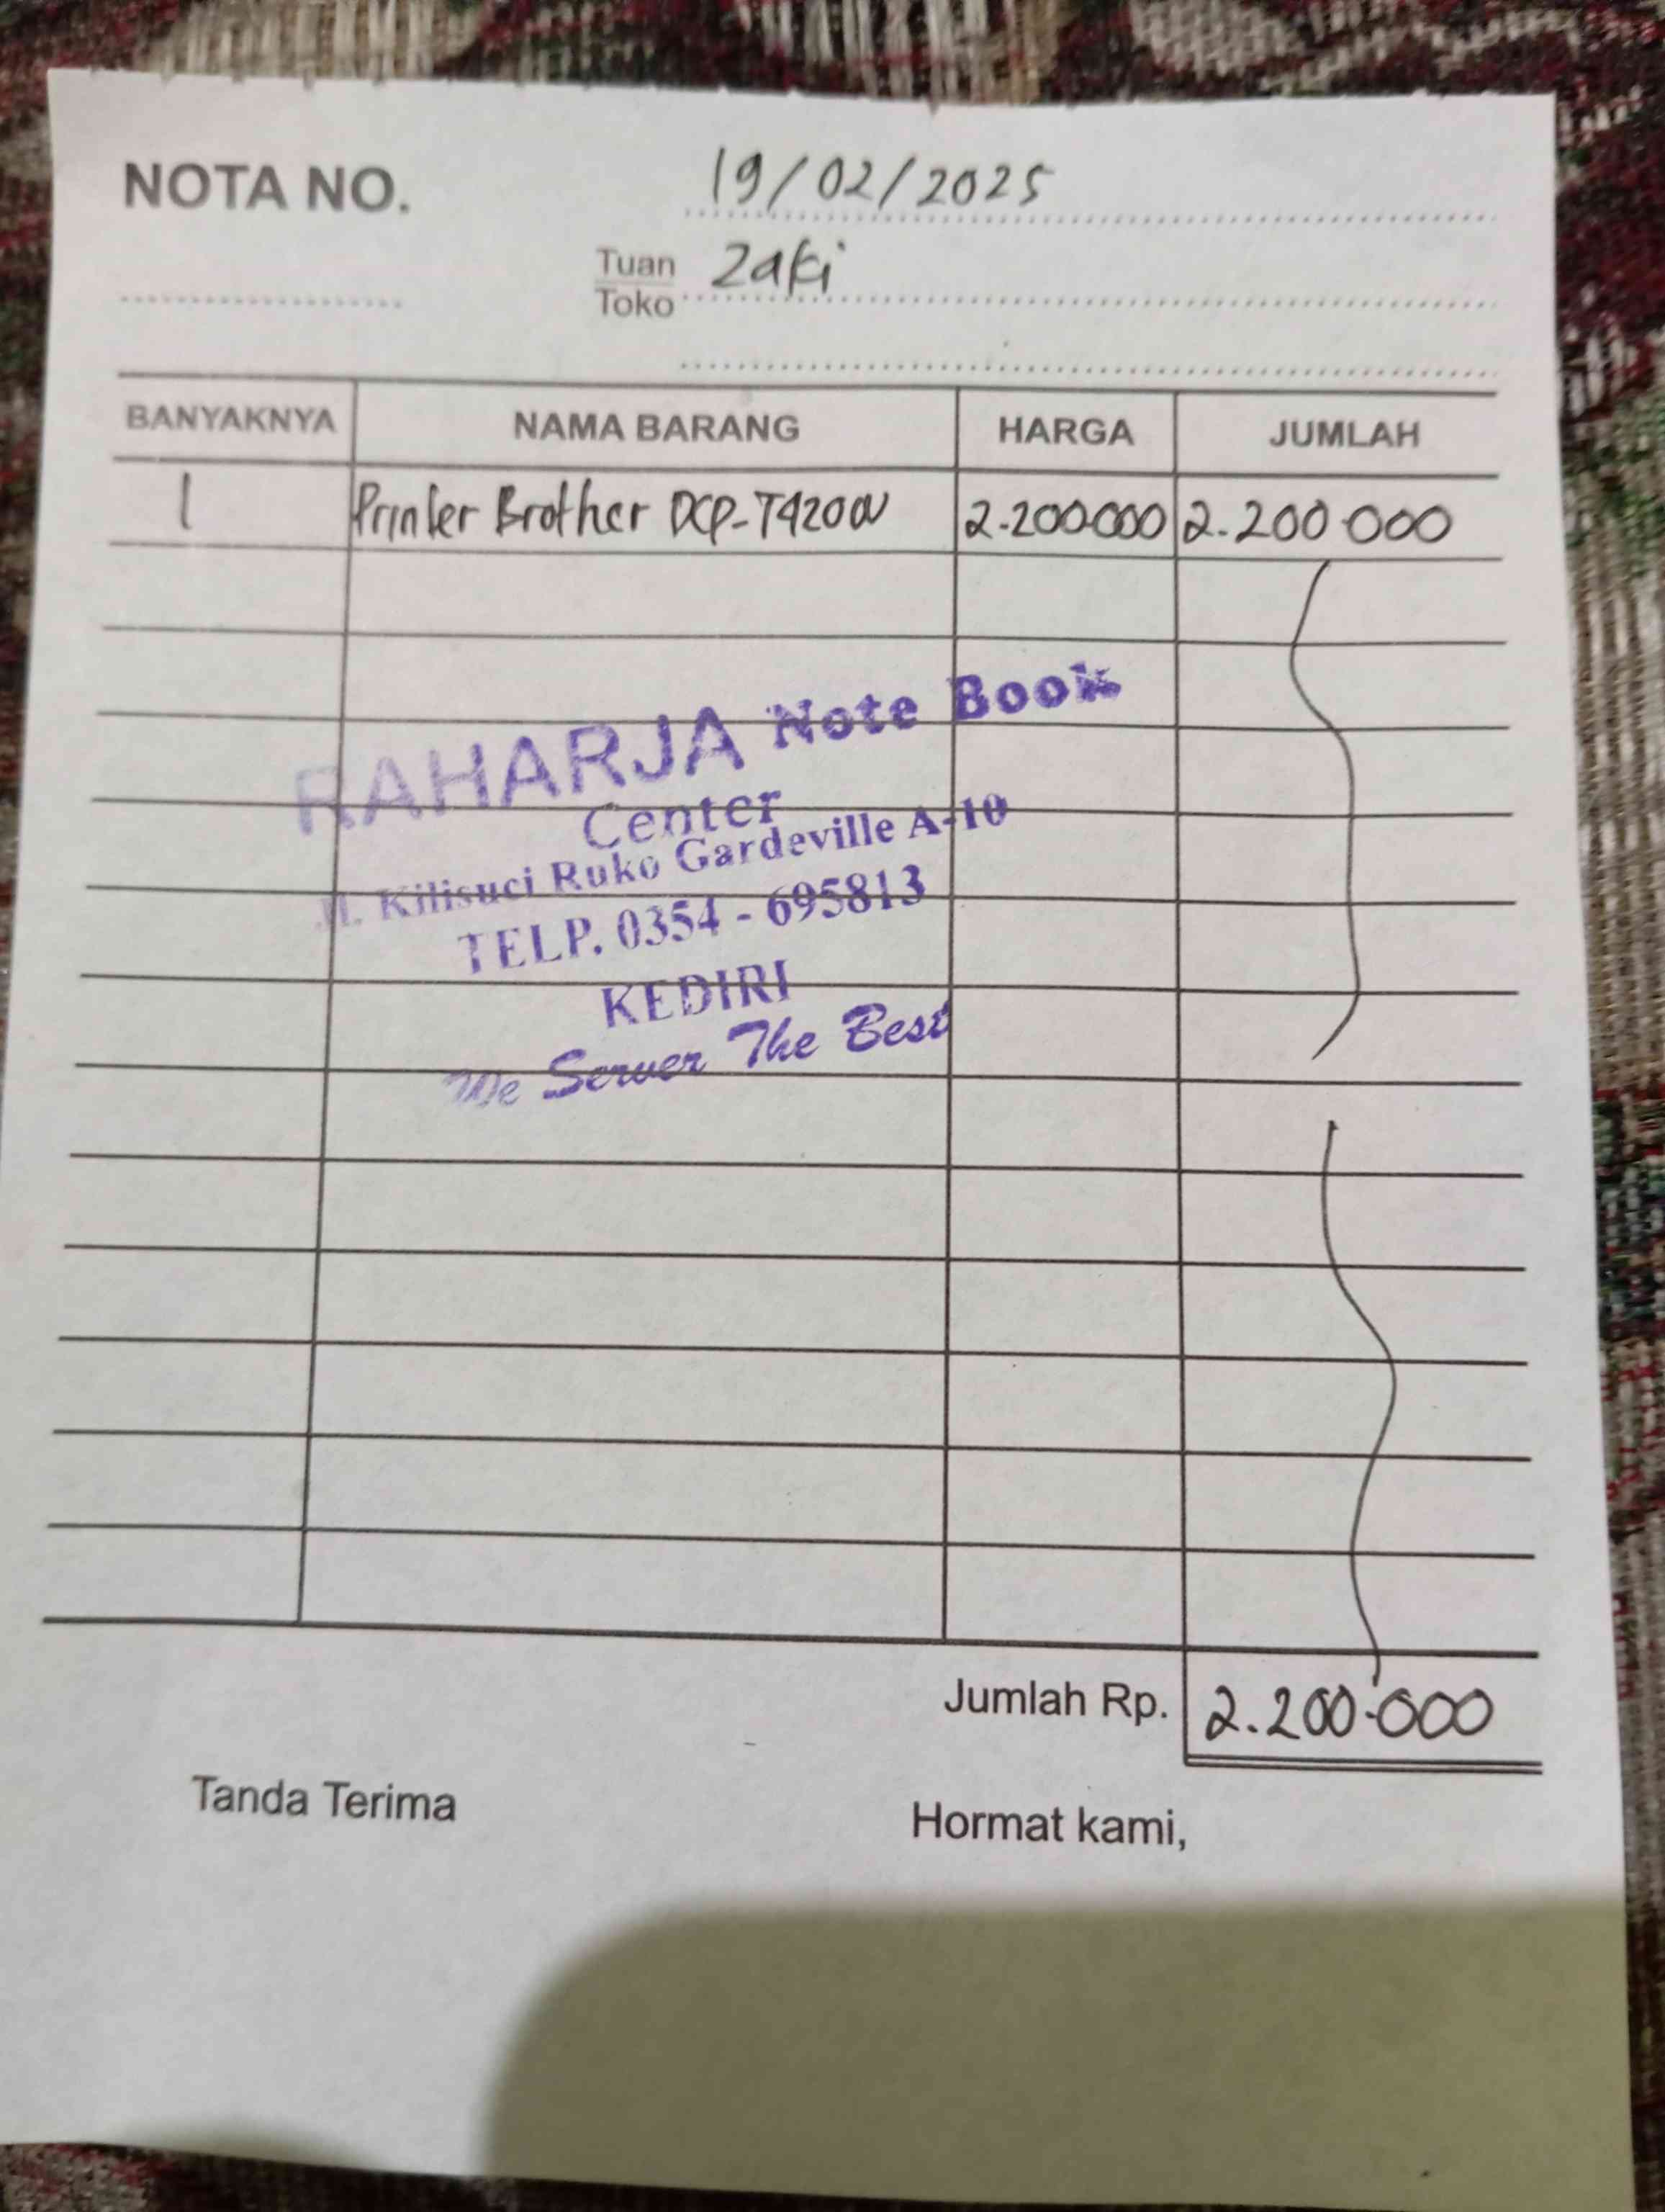 NOTA NO.
19/02/2025
Tuan
Toko
Zaki
BANYAKNYA NAMA BARANG HARGA JUMLAH
1 Printer Brother DCP-T420W 2.200.000 2.200.000
RAHARJA Note Book
Center
Jl. Kilisuci Ruko Gardeville A-10
TELP. 0354 - 695813
KEDIRI
We Server The Best
Jumlah Rp. 2.200.000
Tanda Terima Hormat kami,